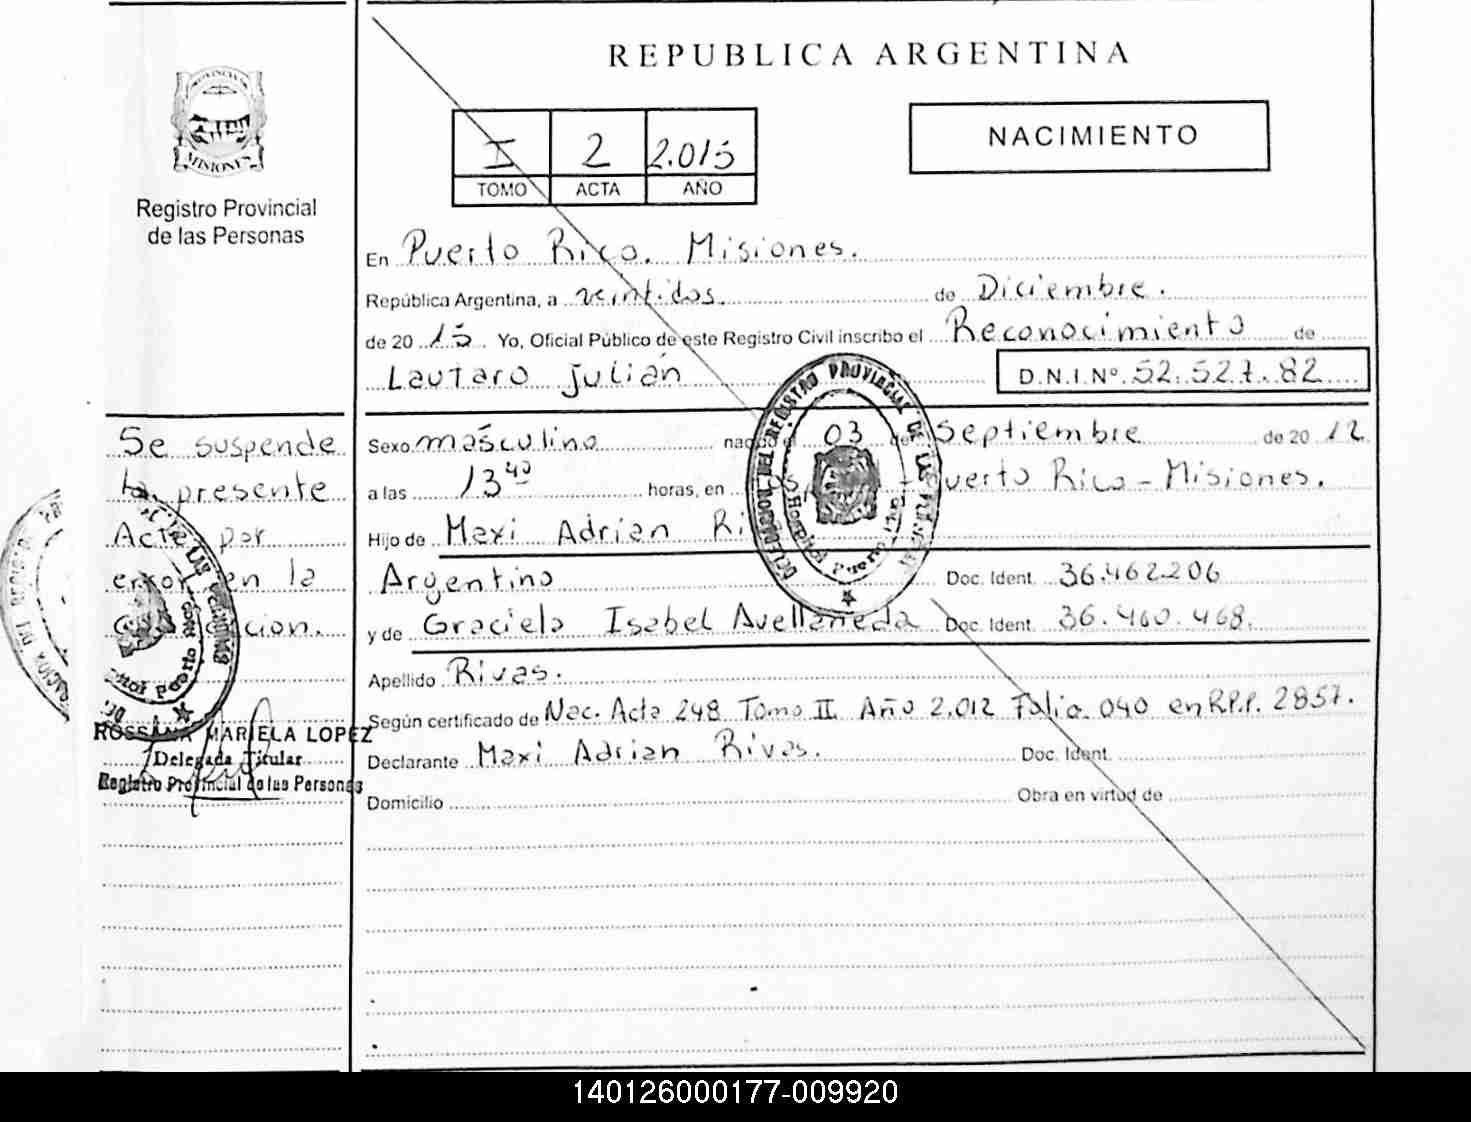 REPUBLICA ARGENTINA
PROVINCIA DE
MISIONES
Registro Provincial
de las Personas
I 2 2.015
TOMO ACTA AÑO
NACIMIENTO
En Puerto Rico. Misiones.
República Argentina, a veintidos. de Diciembre.
de 2015. Yo, Oficial Público de este Registro Civil inscribo el Reconocimiento de
Lautaro Julián D.N.I.Nº. 52.527.82
Sexo masculino nacido el 03 de Septiembre de 2012
a las 13 40 horas, en Puerto Rico - Misiones.
Hijo de Maxi Adrian
Argentino Doc. Ident. 36.462.206
y de Graciela Isabel Avellaneda Doc. Ident. 36.460.468.
Apellido Rivas.
Según certificado de Nac. Acta 248 Tomo II Año 2.012 Folio 040 en R.P.P. 2857.
Declarante Maxi Adrian Rivas. Doc. Ident.
Domicilio Obra en virtud de
Se suspende
la presente
Acta por
error en la
ROSSANA MARIELA LOPEZ
Delegada Titular
Registro Provincial de las Personas
140126000177-009920